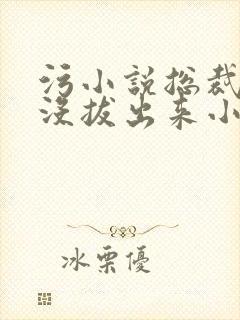 污小说总裁
没拔出来小
冰栗優